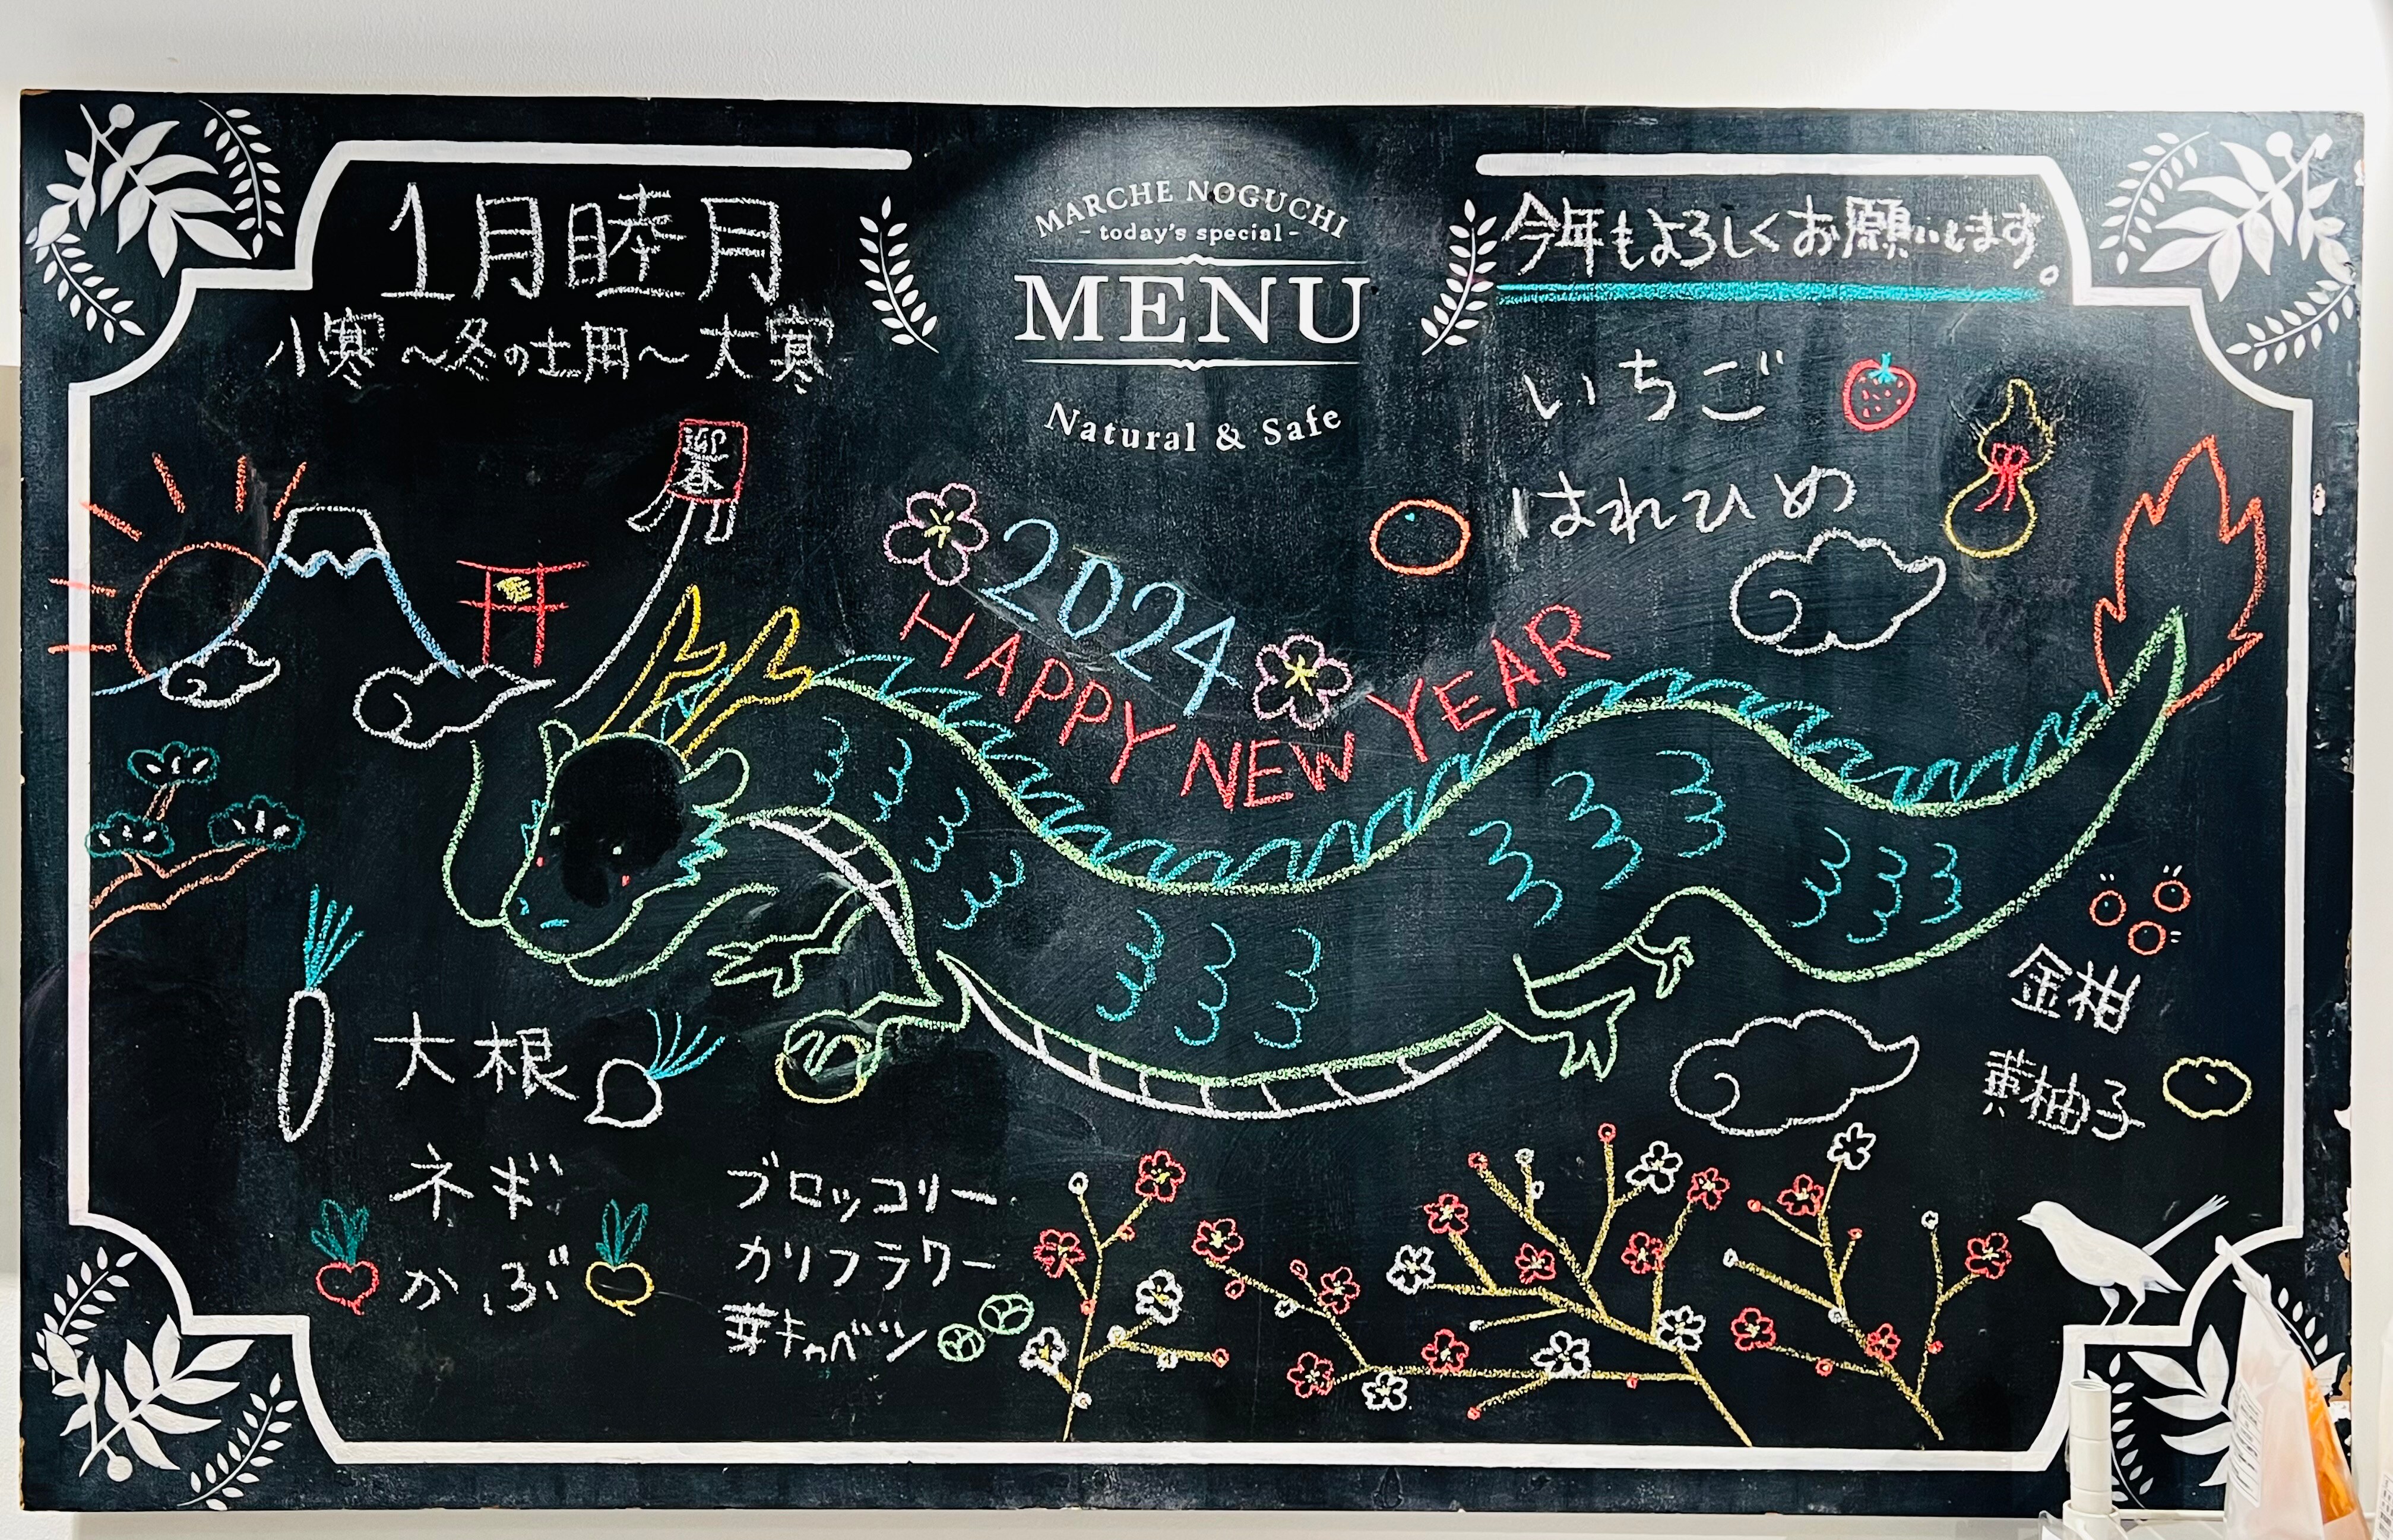 1月睦月
小寒〜冬の土用〜大寒
MARCHE NOGUCHI
-today's special-
MENU
Natural & Safe
今年もよろしくお願いします。
いちご
はれひめ
迎春
2024
HAPPY NEW YEAR
大根
ネギ
かぶ
ブロッコリー
カリフラワー
芽キャベツ
金柑
黄柚子